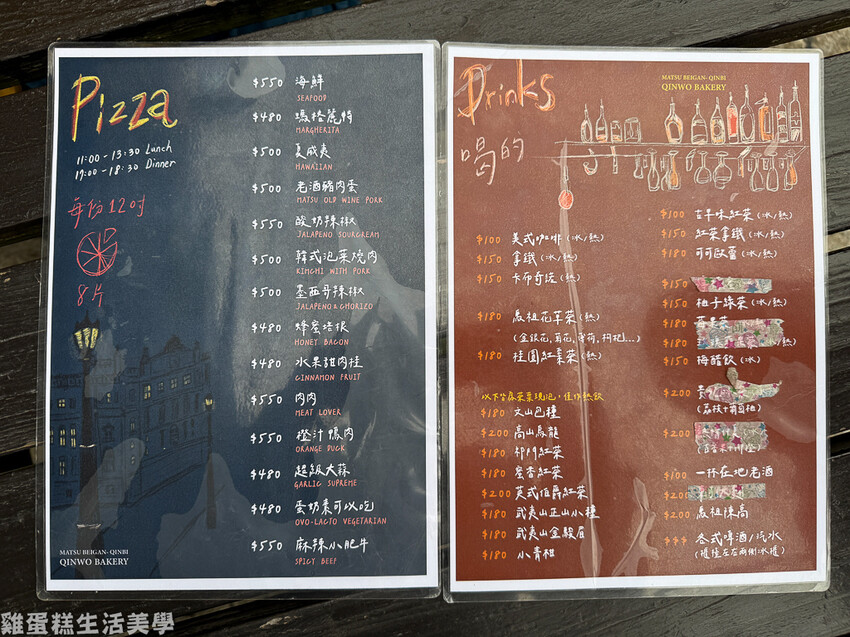 Pizza
11:00 - 13:30 Lunch
17:00 - 18:30 Dinner
每份12吋
8片
$550 海鮮
SEAFOOD
$480 瑪格麗特
MARGHERITA
$500 夏威夷
HAWAIIAN
$500 老酒豬肉蛋
MATSU OLD WINE PORK
$550 酸奶辣椒
JALAPENO SOURCREAM
$500 韓式泡菜燒肉
KIMCHI WITH PORK
$500 墨西哥辣椒
JALAPENO & CHORIZO
$480 蜂蜜培根
HONEY BACON
$480 水果甜肉桂
CINNAMON FRUIT
$550 肉肉
MEAT LOVER
$550 橙汁鴨肉
ORANGE DUCK
$480 超級大蒜
GARLIC SUPREME
$480 蛋奶素可以吃
OVO-LACTO VEGETARIAN
$550 麻辣小肥牛
SPICY BEEF
MATSU BEIGAN- QINBI
QINWO BAKERY
Drinks
喝的
MATSU BEIGAN- QINBI
QINWO BAKERY
$100 美式咖啡 (冰/熱)
$150 拿鐵 (冰/熱)
$150 卡布奇諾 (熱)
$180 馬祖花草茶 (熱)
(金銀花, 菊花, 薄荷, 枸杞...)
$180 桂圓紅棗茶 (熱)
以下皆為茶葉現泡，僅作熱飲
$180 文山包種
$200 高山烏龍
$180 祁門紅茶
$180 蜜香紅茶
$200 英式伯爵紅茶
$180 武夷山正山小種
$180 武夷山金駿眉
$180 小青柑
$100 古早味紅茶 (冰/熱)
$150 紅茶拿鐵 (冰/熱)
$180 可可歐蕾 (冰/熱)
$150
$150 柚子綠茶 (冰/熱)
$180
$180 /熱)
$150 梅醋飲 (冰)
$200
(荔枝+葡萄柚)
$200
$100 一杯在地老酒
$200
$200 馬祖陳高
$$$ 各式啤酒/汽水
(櫃檯左右兩側冰櫃)
雞蛋糕生活美學